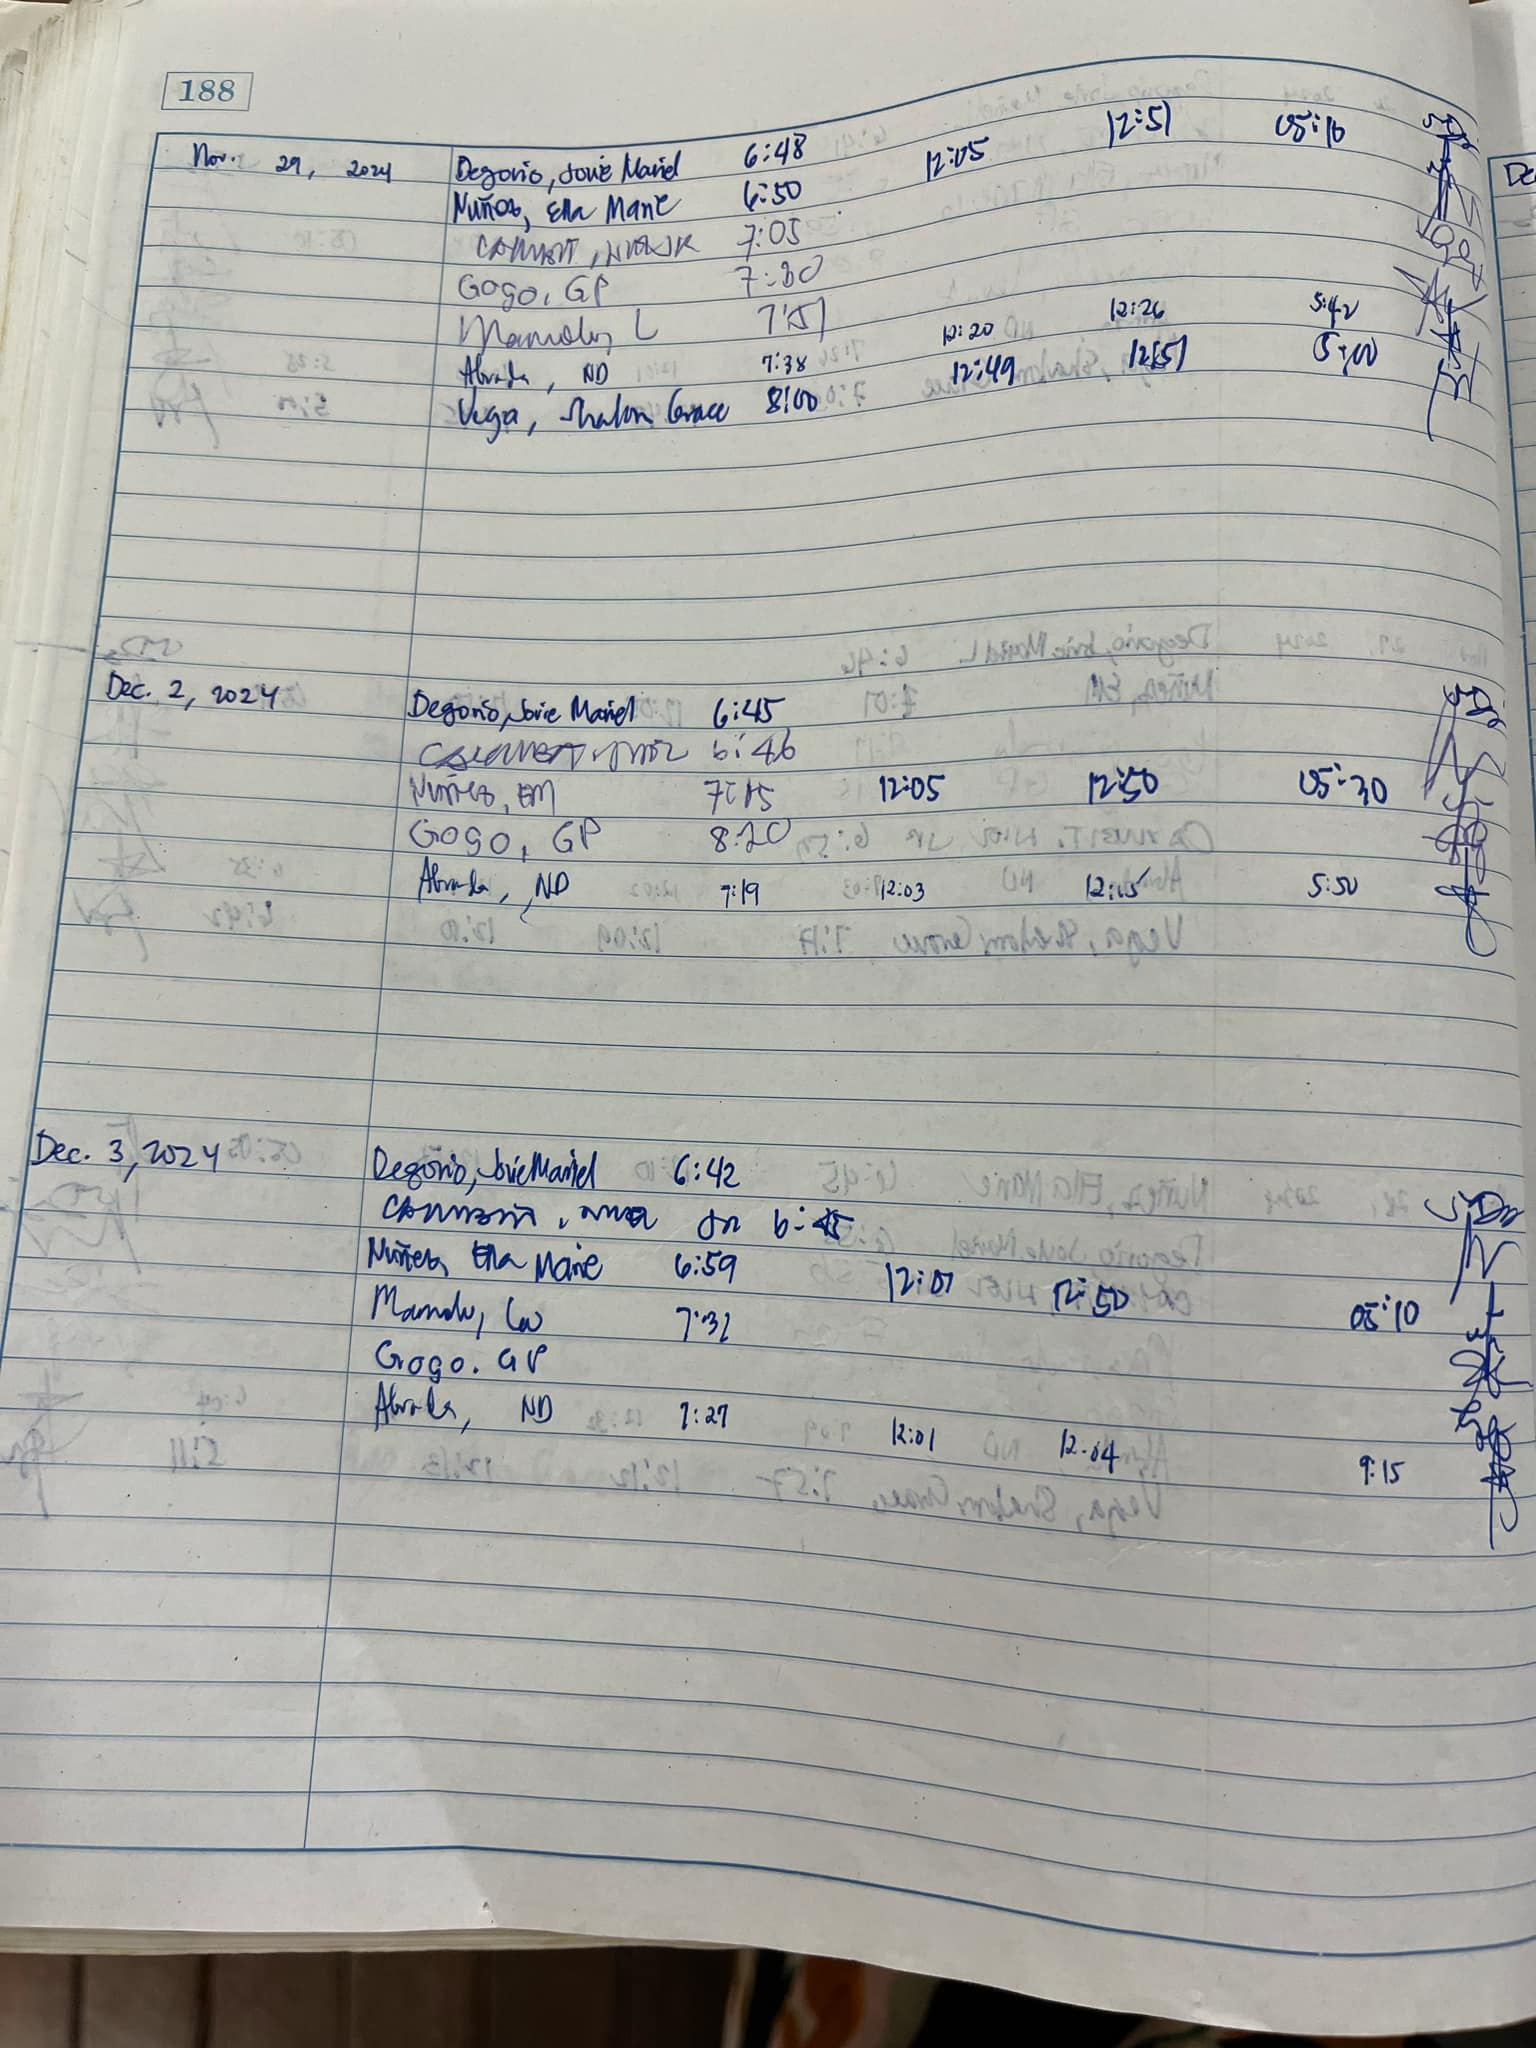 188
Nov. 29, 2024 Degorio, Jovie Mariel 6:48
Nuñez, Ella Marie 6:50 12:05 12:51 05:10
7:05
Gogo, GP 7:30
L 7:51
Abrada, ND 7:38 12:20 12:26 5:42
Vega, Shalom Grace 8:00 12:49 12:51 5:00
Dec. 2, 2024 Degorio, Jovie Mariel 6:45
6:46
Nuñez, EM 7:15 12:05 12:50 05:30
Gogo, GP 8:20
Abrada, ND 7:19 12:03 12:15 5:50
Dec. 3, 2024 Degorio, Jovie Mariel 6:42
Jr 6:45
Nuñez, Ella Marie 6:59 12:07 12:50 05:10
7:32
Gogo. GP
Abrada, ND 7:27 12:01 12:04 9:15